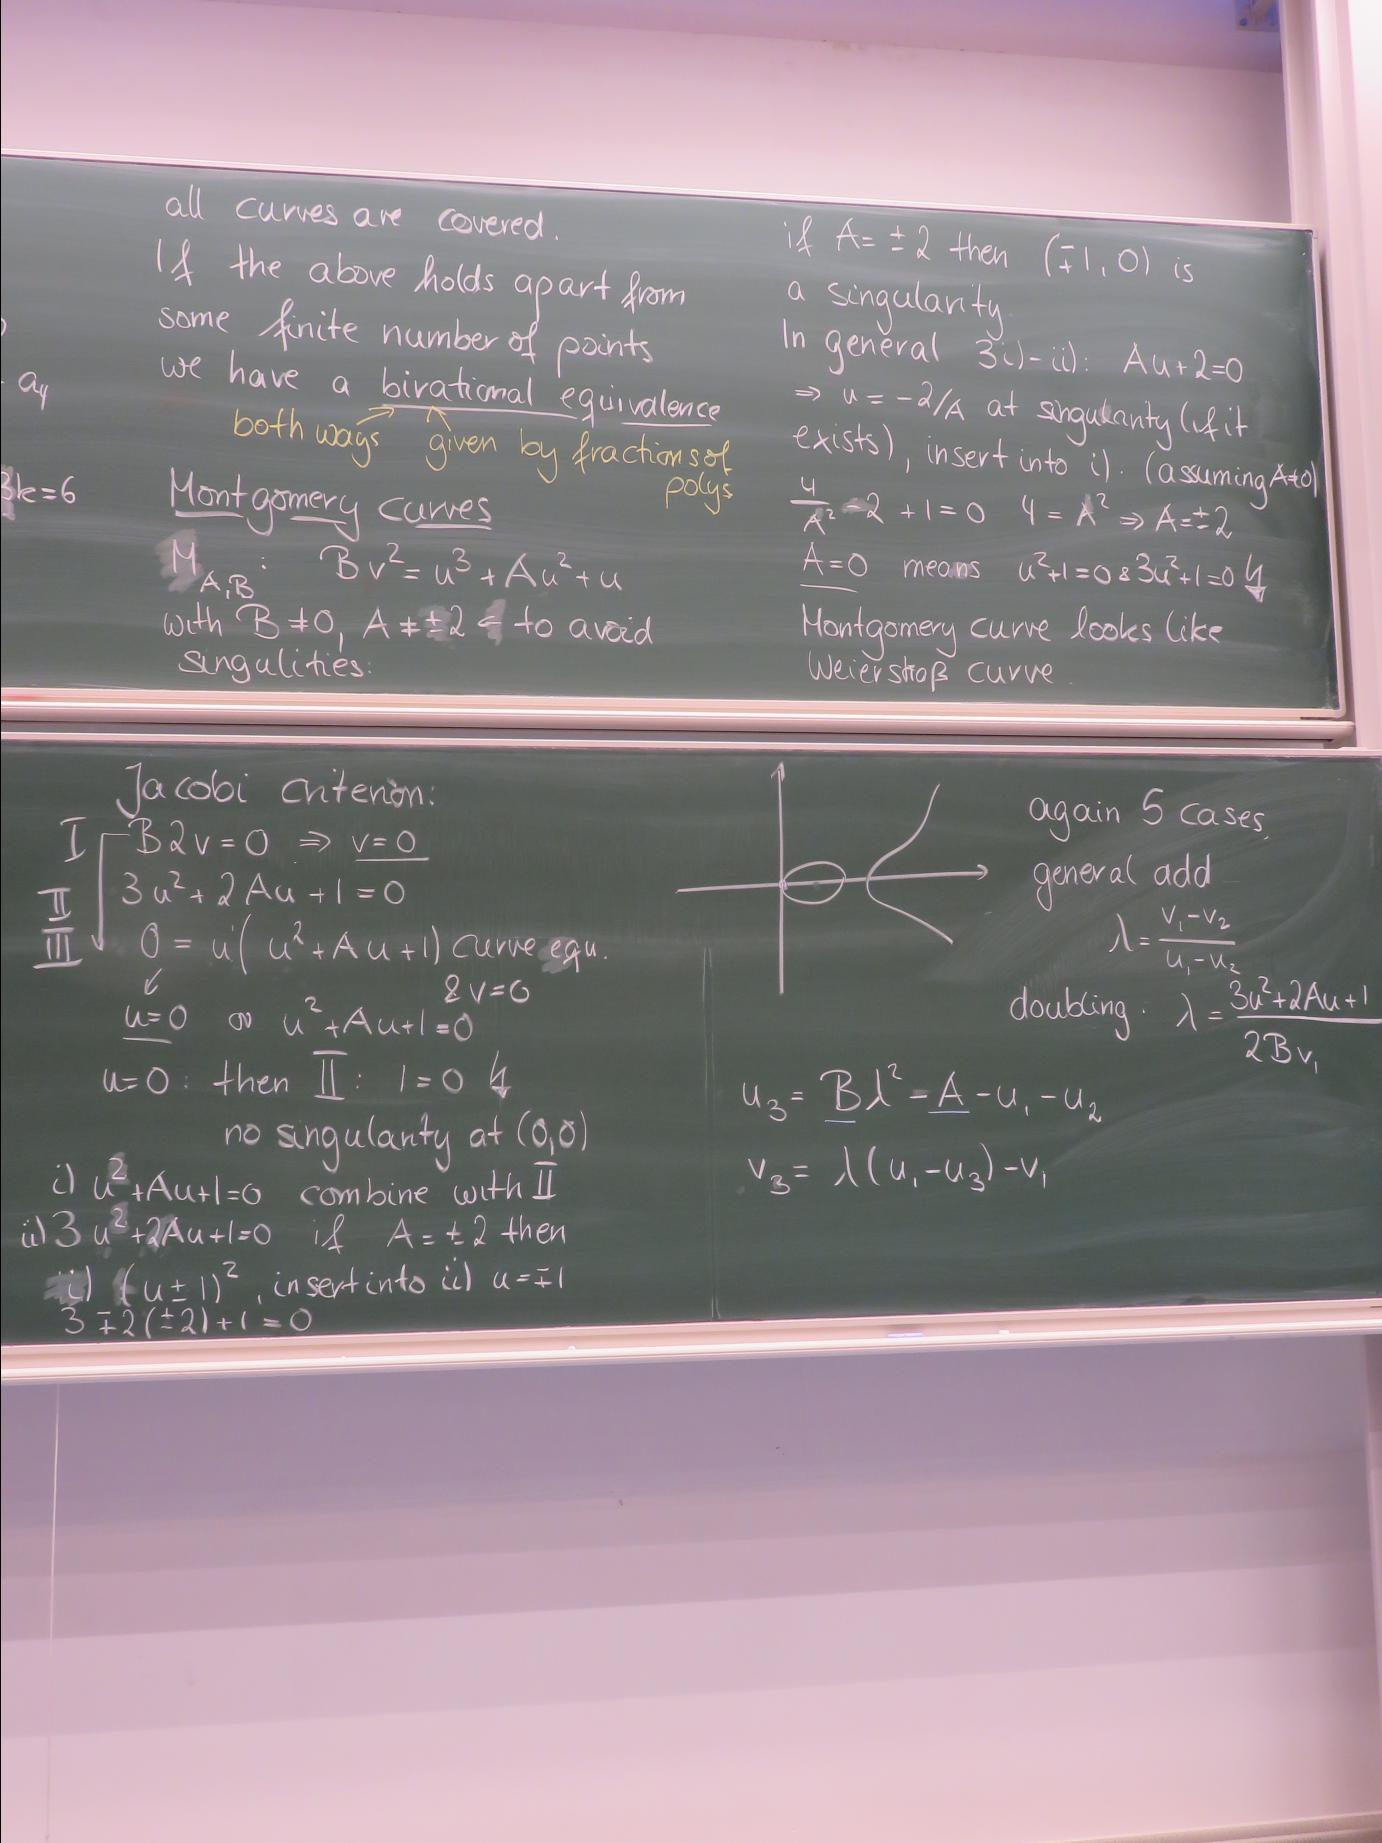 all curves are covered.
If the above holds apart from
some finite number of points
we have a birational equivalence
both ways given by fractions of
polys
a₄
3k=6
Montgomery curves
M_{A,B}: Bv²=u³+Au²+u
with B≠0, A≠±2 ← to avoid
singulities:
if A=±2 then (∓1,0) is
a singularity.
In general 3i)-ii): Au+2=0
⇒ u=-2/A at singularity (if it
exists), insert into i). (assuming A≠0)
4/A² -2+1=0 4=A² ⇒ A=±2
A=0 means u²+1=0 & 3u²+1=0 ↯
Montgomery curve looks like
Weierstraß curve.
Jacobi criterion:
I B2v=0 ⇒ v=0
II 3u²+2Au+1=0
III 0=u(u²+Au+1) curve equ.
& v=0
u=0 or u²+Au+1=0
u=0: then II: 1=0 ↯
no singularity at (0,0)
i) u²+Au+1=0 combine with II
ii) 3u²+2Au+1=0 if A=±2 then
i) (u±1)², insert into ii) u=∓1
3∓2(±2)+1=0
again 5 cases,
general add
λ=(v₁-v₂)/(u₁-u₂)
doubling: λ=(3u²+2Au+1)/(2Bv₁)
u₃=Bλ²-A-u₁-u₂
v₃=λ(u₁-u₃)-v₁